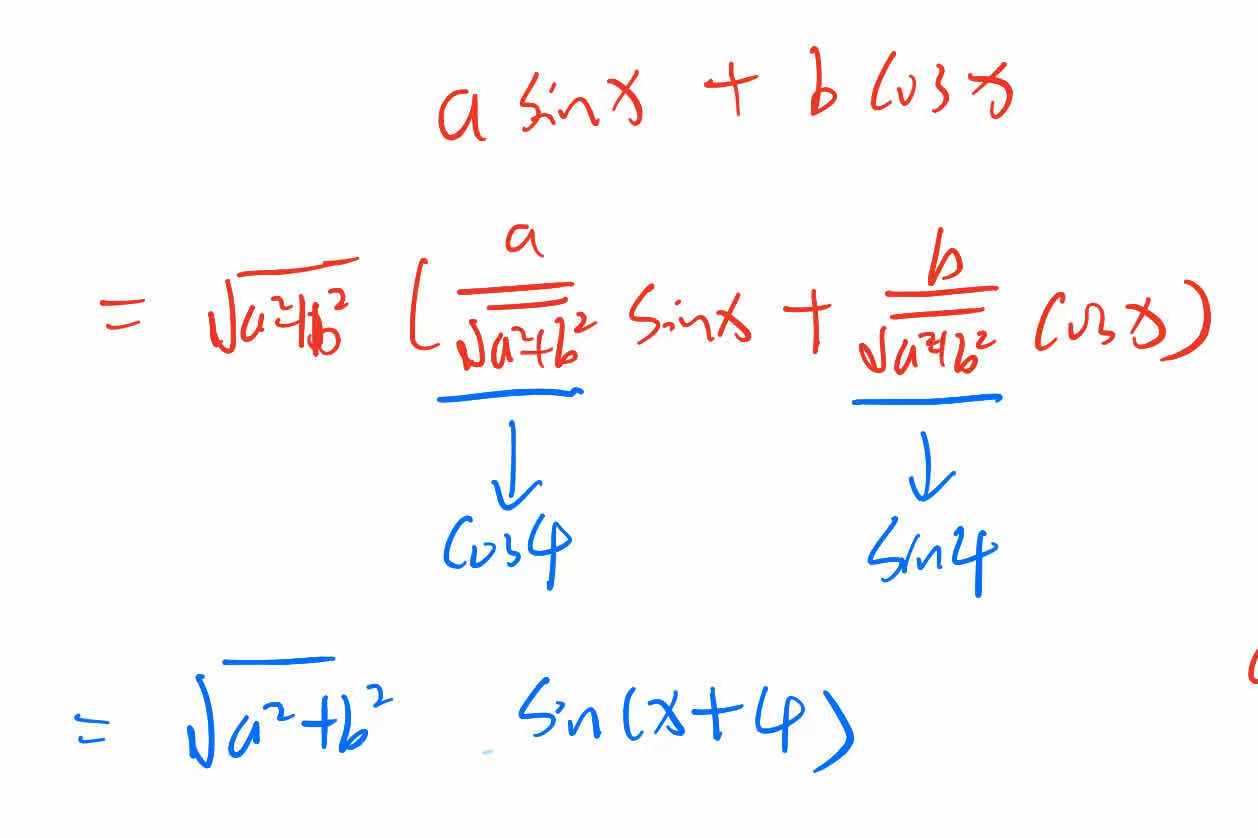 a sinx + b cosx
= √(a²+b²) ( a/√(a²+b²) sinx + b/√(a²+b²) cosx )
cosφ sinφ
= √(a²+b²) sin(x+φ)